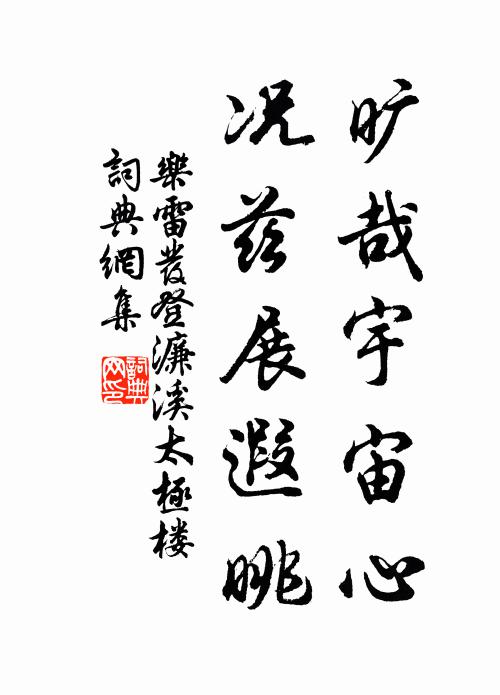 旷哉宇宙心
况兹展遐眺
樂雷發登濂溪太極楼
詞典網集
詞典網印